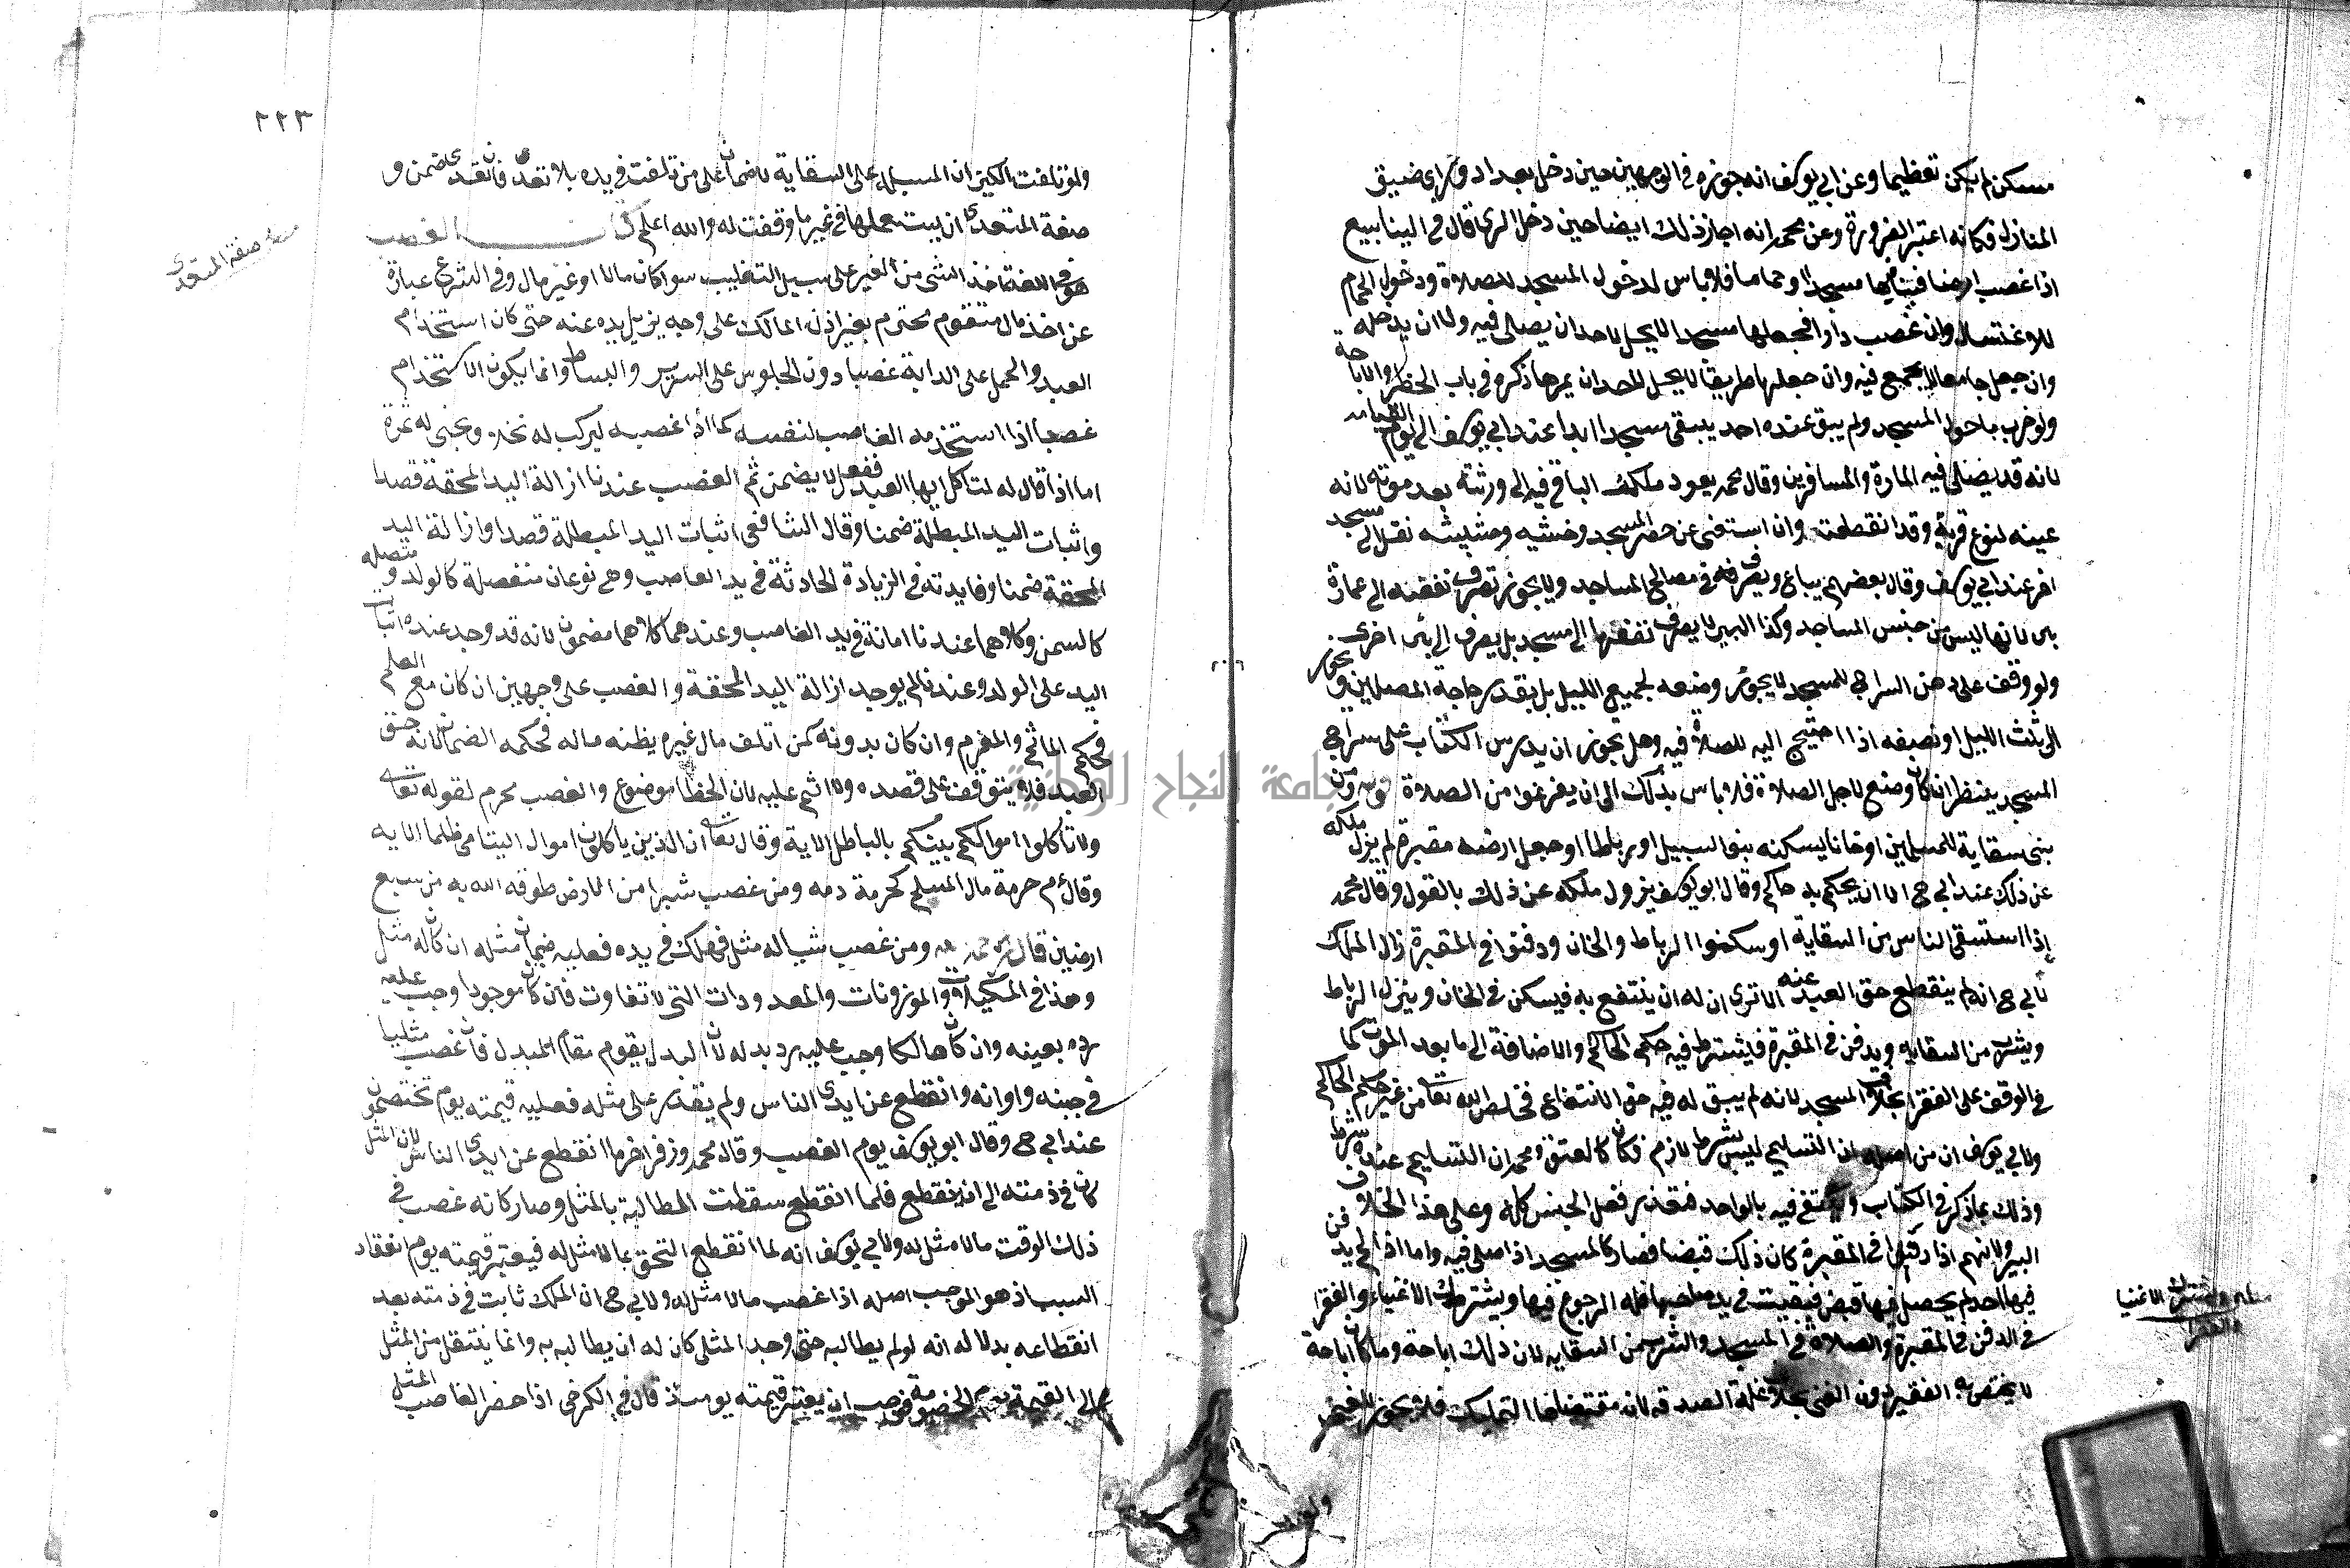 مسكن لم يكن تعظيما وعن ابي يوسف انه جوزه في الوجهين حين دخل بغداد وراي ضيق
المنازل فكانه اعتبر الضرورة وعن محمد انه اجاز ذلك ايضا حين دخل الري قال في الينابيع
اذا غصب ارضا فبناها مسجدا او حماما فلا باس لدخول المسجد للصلاة ودخول الحمام
للاغتسال وان غصب دارا فجعلها مسجدا لا يحل لاحد ان يصلى فيه ولا ان يدخله
وان جعل جامعا لا يجمع فيه وان جعلها طريقا لا يحل لاحد ان يمر ها ذكره في باب الحظر والاباحة
ولو خرب ما حول المسجد ولم يبق عنده احد يبقى مسجدا ابدا عند ابي يوسف الى يوم القيامه
لانه قد يصلى فيه المارة والمسافرين وقال محمد يعود ملكه الباقي فيه الى ورثته بعد موته لانه
عينه لنوع قربة وقد انقطعت وان استغنى عن حصر المسجد وخشبه وحشيشه نقل الى مسجد
اخر عند ابي يوسف وقال بعضهم يباع ويصرف في مصالح المساجد ولا يجوز تصرف نقضه الى عمارة
بئر لانها ليس من جنس المساجد وكذا البير لا يصرف نقضها الى مسجد بل يصرف الى بئر اخرى
ولو وقف على دهن السراج للمسجد لا يجوز وضعه لجميع الليل بل بقدر حاجة المصلين ويجوز
الى ثلث الليل او نصفه اذا احتيج اليه للصلاة فيه وهل يجوز ان يدرس الكتاب على سراج
المسجد ينظر ان كان وضع لاجل الصلاة فلا باس بذلك الى ان يفرغوا من الصلاة
بنى سقاية للمسلمين او خانا يسكنه بنو السبيل او رباطا او جعل ارضه مقبرة لم يزل ملكه
عن ذلك عند ابي ح الا ان يحكم به حاكم وقال ابو يوسف يزول ملكه عن ذلك بالقول وقال محمد
اذا استسقى الناس من السقاية او سكنوا الرباط والخان ودفنوا في المقبرة زال الملك
لابي ح انه لم ينقطع حق العبد عنه الا ترى ان له ان ينتفع به فيسكن في الخان وينزل الرباط
ويشرب من السقايه ويدفن في المقبرة فيشترط فيه حكم الحاكم والاضافة الى ما بعد الموت كما
في الوقف على الفقرا بخلاف المسجد لانه لم يبق له فيه حق الانتفاع فخلص لله تعا من غير حكم الحاكم
ولابي يوسف ان من اصله ان التسليم ليس بشرط لازم فكان كالعتق ومحمد ان التسليم عنده شرط
وذلك بما ذكر في الكتاب ويكتفى فيه بالواحد لتعذر فعل الجنس كله وعلى هذا الخلاف
البير ولانهم اذا دفنوا في المقبرة كان ذلك قبضا فصار كالمسجد اذا صلى فيه واما اذا لم يدفن
فيها احد لم يحصل فيها قبض فبقيت في يد صاحبها فله الرجوع فيها ويشترك الاغنياء والفقرا
في الدفن في المقبرة والصلاة في المسجد والشرب من السقايه لان ذلك اباحة وما كان اباحة
لا يختص به الفقير دون الغنى بخلاف غلة الصدقه لانه مقتضاها التمليك فلا يجوز للغني
الاغنيا
والفقرا
ولو
٢٢٣
ولو تلفت الكيزان المسبلة على السقاية لا ضمان على من تلفت في يده بلا تعد فان تعدى ضمن و
صفة المتعدى ان يستعملها في غير ما وقفت له والله اعلم كتاب الغصب
صفة المتعدى
هو في اللغة اخذ الشى من الغير على سبيل التغليب سوا كان مالا او غير مال وفي الشرع عبارة
عن اخذ مال متقوم محترم بغير اذن المالك على وجه يزيل يده عنه حتى كان استخدام
العبد والحمل على الدابة غصبا دون الجلوس على السرير والبساط وانما يكون الاستخدام
غصبا اذا استخدمه الغاصب لنفسه كما اذا غصبه ليركب له نخلا ويجنى له ثمرة
اما اذا قال له لتاكل ايها العبد ففعل لا يضمن ثم الغصب عندنا ازالة اليد المحقة قصدا
واثبات اليد المبطلة ضمنا وقال الشافعى اثبات اليد المبطلة قصدا وازالة اليد
المحقة ضمنا وفايدته في الزيادة الحادثة في يد الغاصب وهي نوعان منفصلة كالولد ومتصله
كالسمن وكلاهما عندنا امانة في يد الغاصب وعندهما كلاهما مضمون لانه قد وجد عنده اثبات
اليد على الولد وعندنا لم يوجد ازالة اليد المحقة والغصب على وجهين ان كان مع العلم
فحكم الماثم والمغرم وان كان بدونه كمن اتلف مال غيره يظنه ماله فحكمه الضمان لانه حق
العبد فلا يتوقف على قصده ولا اثم عليه لان الخطا موضوع والغصب محرم لقوله تعا
ولا تاكلوا اموالكم بينكم بالباطل الاية وقال تعا ان الذين ياكلون اموال اليتامى ظلما الايه
وقال م حرمة مال المسلم كحرمة دمه ومن غصب شبرا من الارض طوقه الله به من سبع
ارضين قال ومن غصب شيا له مثل فهلك في يده فعليه ضمان مثله ان كان له مثل
وهذا في المكيلات والموزونات والمعدودات التى لا تفاوت فان كان موجودا وجب عليه
رده بعينه وان كان هالكا وجب عليه رد بدله لان البدل يقوم مقام المبدل فان غصب مثليا
في حينه واوانه وانقطع عن ايدى الناس ولم يقدر على مثله فعليه قيمته يوم تختصمون
عند ابي ح وقال ابو يوسف يوم الغصب وقال محمد وزفر اخر ما انقطع عن ايدى الناس لان المثل
كان في ذمته الى ان ينقطع فلما انقطع سقطت المطالبة بالمثل وصار كانه غصب في
ذلك الوقت مالا مثل له ولابي يوسف انه لما انقطع التحق بما لا مثل له فيعتبر قيمته يوم انعقاد
السبب اذ هو الموجب اصله اذا غصب مالا مثل له ولابي ح ان الملك ثابت في ذمته بعد
انقطاعه بدلاله انه لو لم يطالبه حتى وجد المثلى كان له ان يطالبه به وانما ينتقل من المثل
الى القيمة يوم الخصومة فوجب ان يعتبر قيمته يومئذ قال في الكرخى اذا حضر الغاصب المثل
جامعة النجاح الوطنية